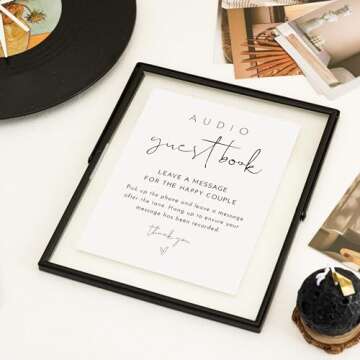 AUDIO
guestbook
LEAVE A MESSAGE
FOR THE HAPPY COUPLE
Pick up the phone and leave a message
after the tone. Hang up to ensure your
message has been recorded.
thank you